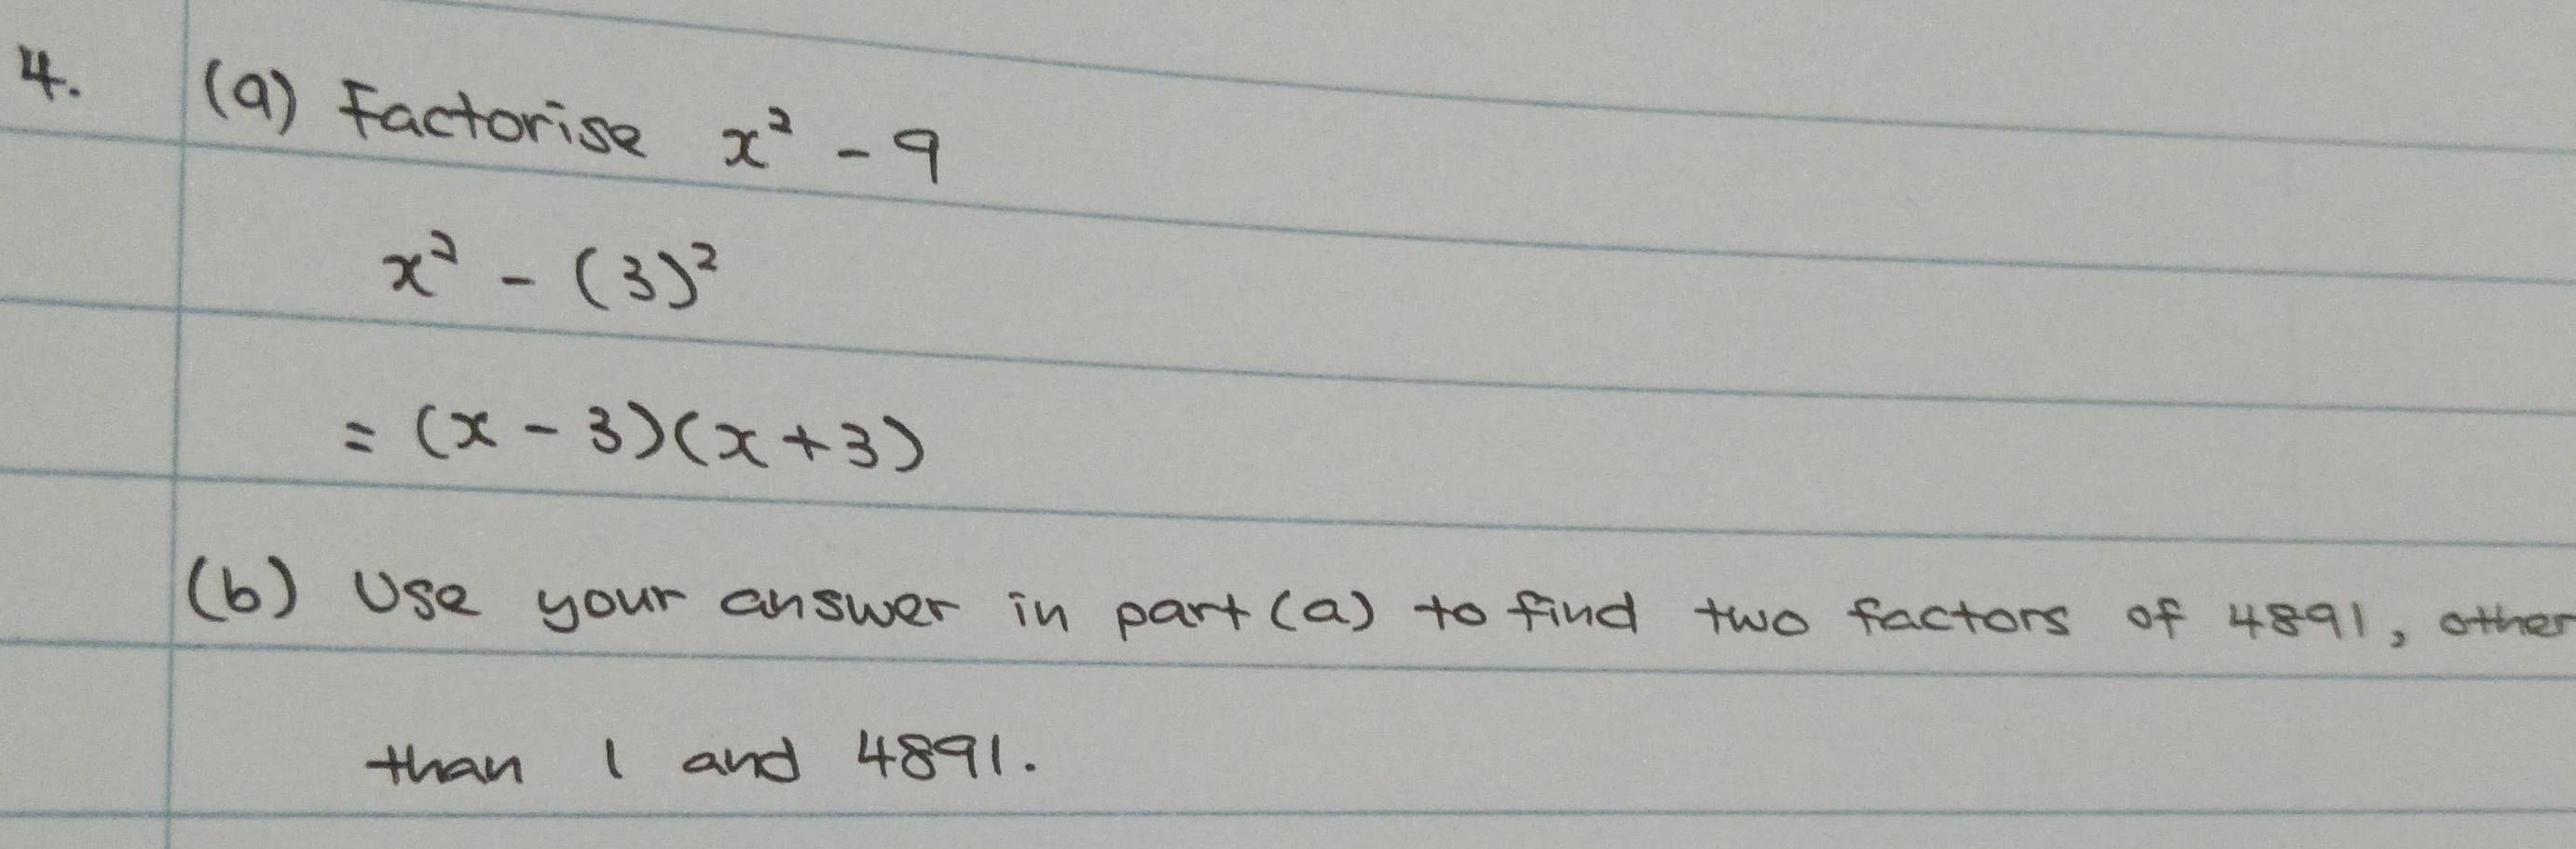 4. (a) Factorise x² - 9
x² - (3)²
= (x - 3)(x + 3)
(b) Use your answer in part (a) to find two factors of 4891, other
than 1 and 4891.